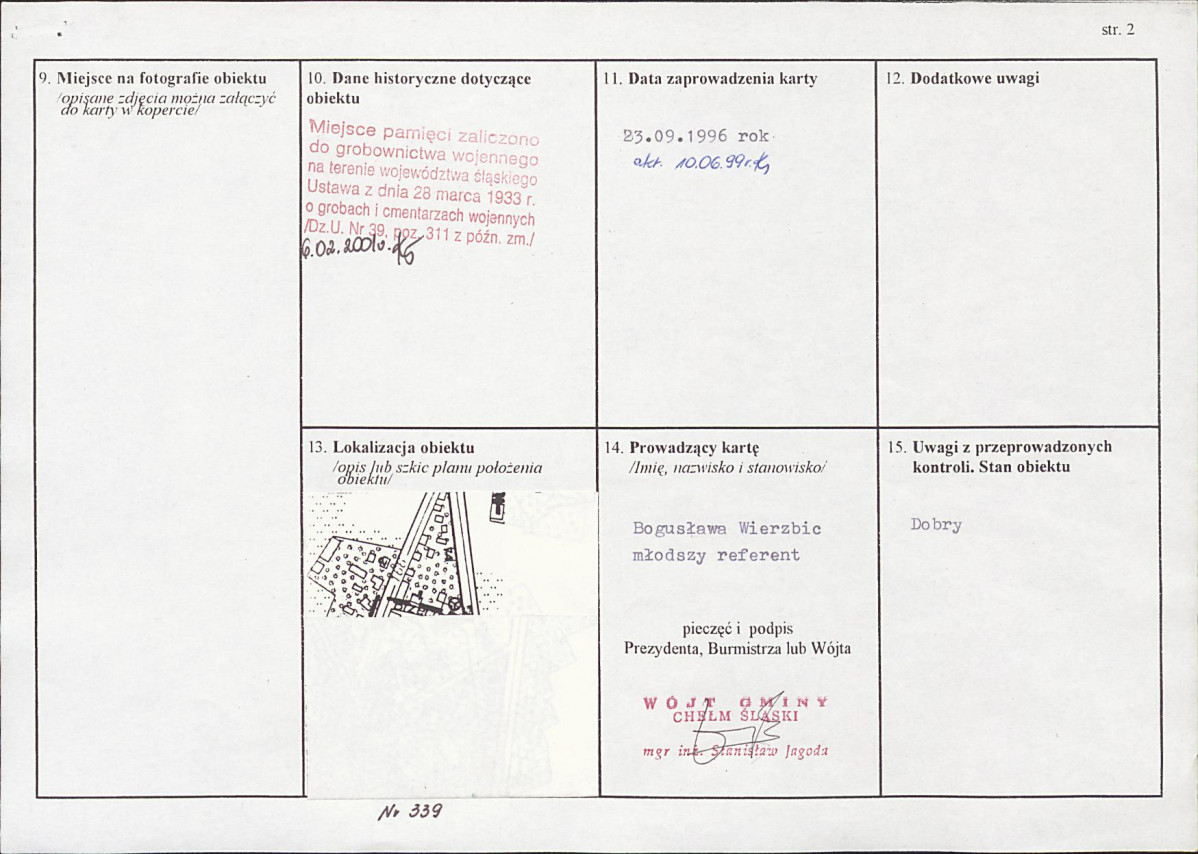 str. 2
9. Miejsce na fotografie obiektu
/opisane zdjęcia można załączyć
do karty w kopercie/
10. Dane historyczne dotyczące
obiektu
Miejsce pamięci zaliczono
do grobownictwa wojennego
na terenie województwa śląskiego
Ustawa z dnia 28 marca 1933 r.
o grobach i cmentarzach wojennych
/Dz.U. Nr 39, poz. 311 z późn. zm./
6.02.2001r.
11. Data zaprowadzenia karty
23.09.1996 rok
akt. 10.06.99r.
12. Dodatkowe uwagi
13. Lokalizacja obiektu
/opis lub szkic planu położenia
obiektu/
14. Prowadzący kartę
/Imię, nazwisko i stanowisko/
Bogusława Wierzbic
młodszy referent
pieczęć i podpis
Prezydenta, Burmistrza lub Wójta
WÓJT GMINY
CHEŁM ŚLĄSKI
mgr inż. Stanisław Jagoda
15. Uwagi z przeprowadzonych
kontroli. Stan obiektu
Dobry
Nr 339